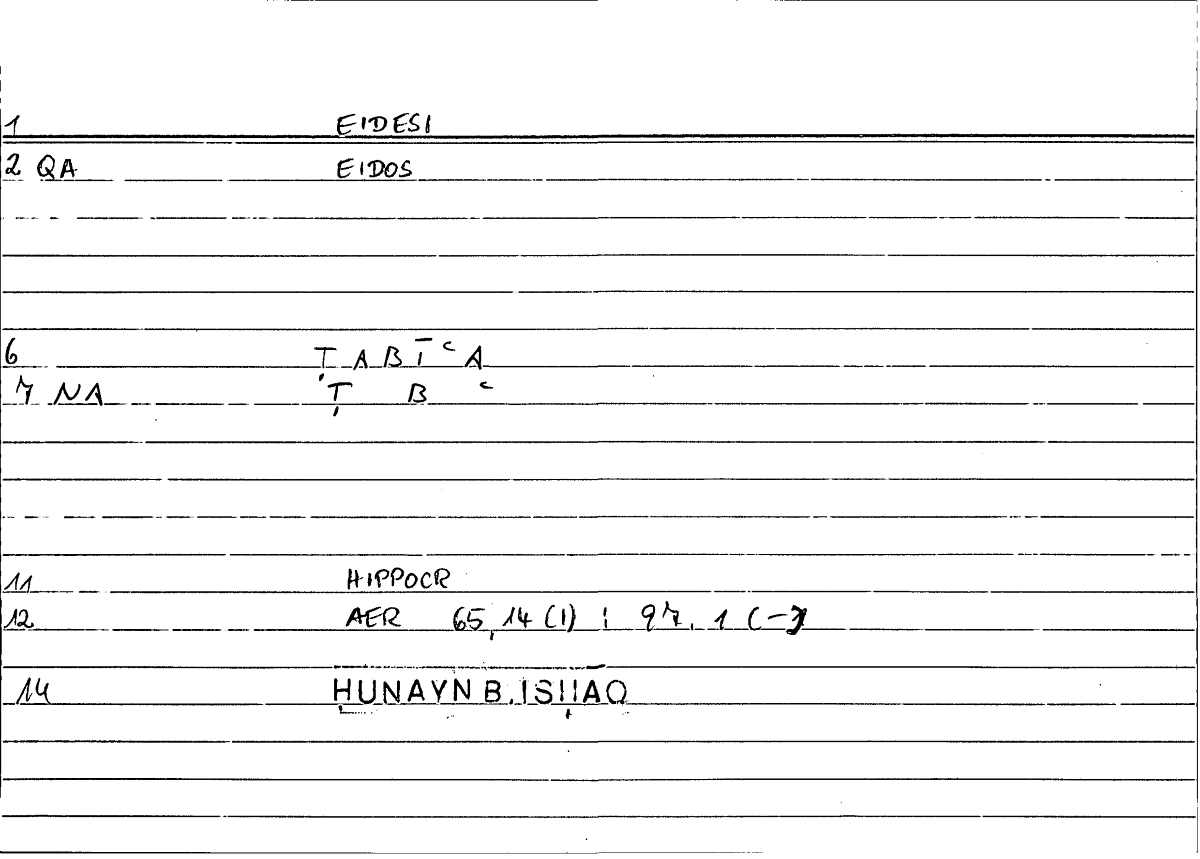 1 EIDESI
2 QA EIDOS
6 ṬABĪʿA
7 NA Ṭ B ʿ
11 HIPPOCR
12 AER 65,14 (1) ; 97,1 (-)
14 ḤUNAYN B. ISḤĀQ